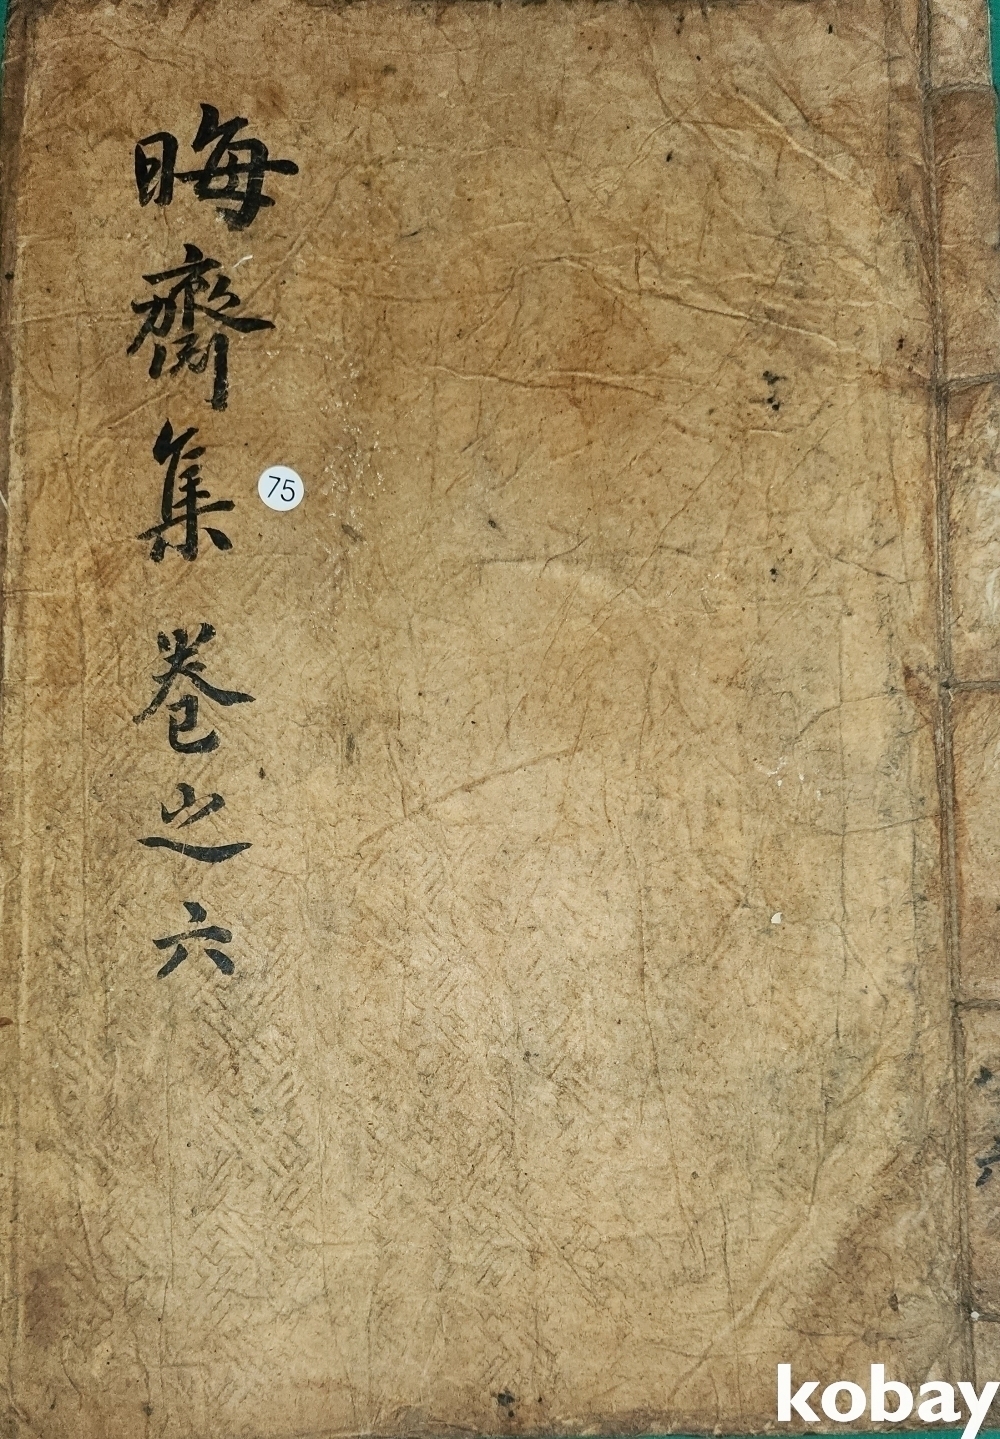 晦齋集 卷之六
75
kobay